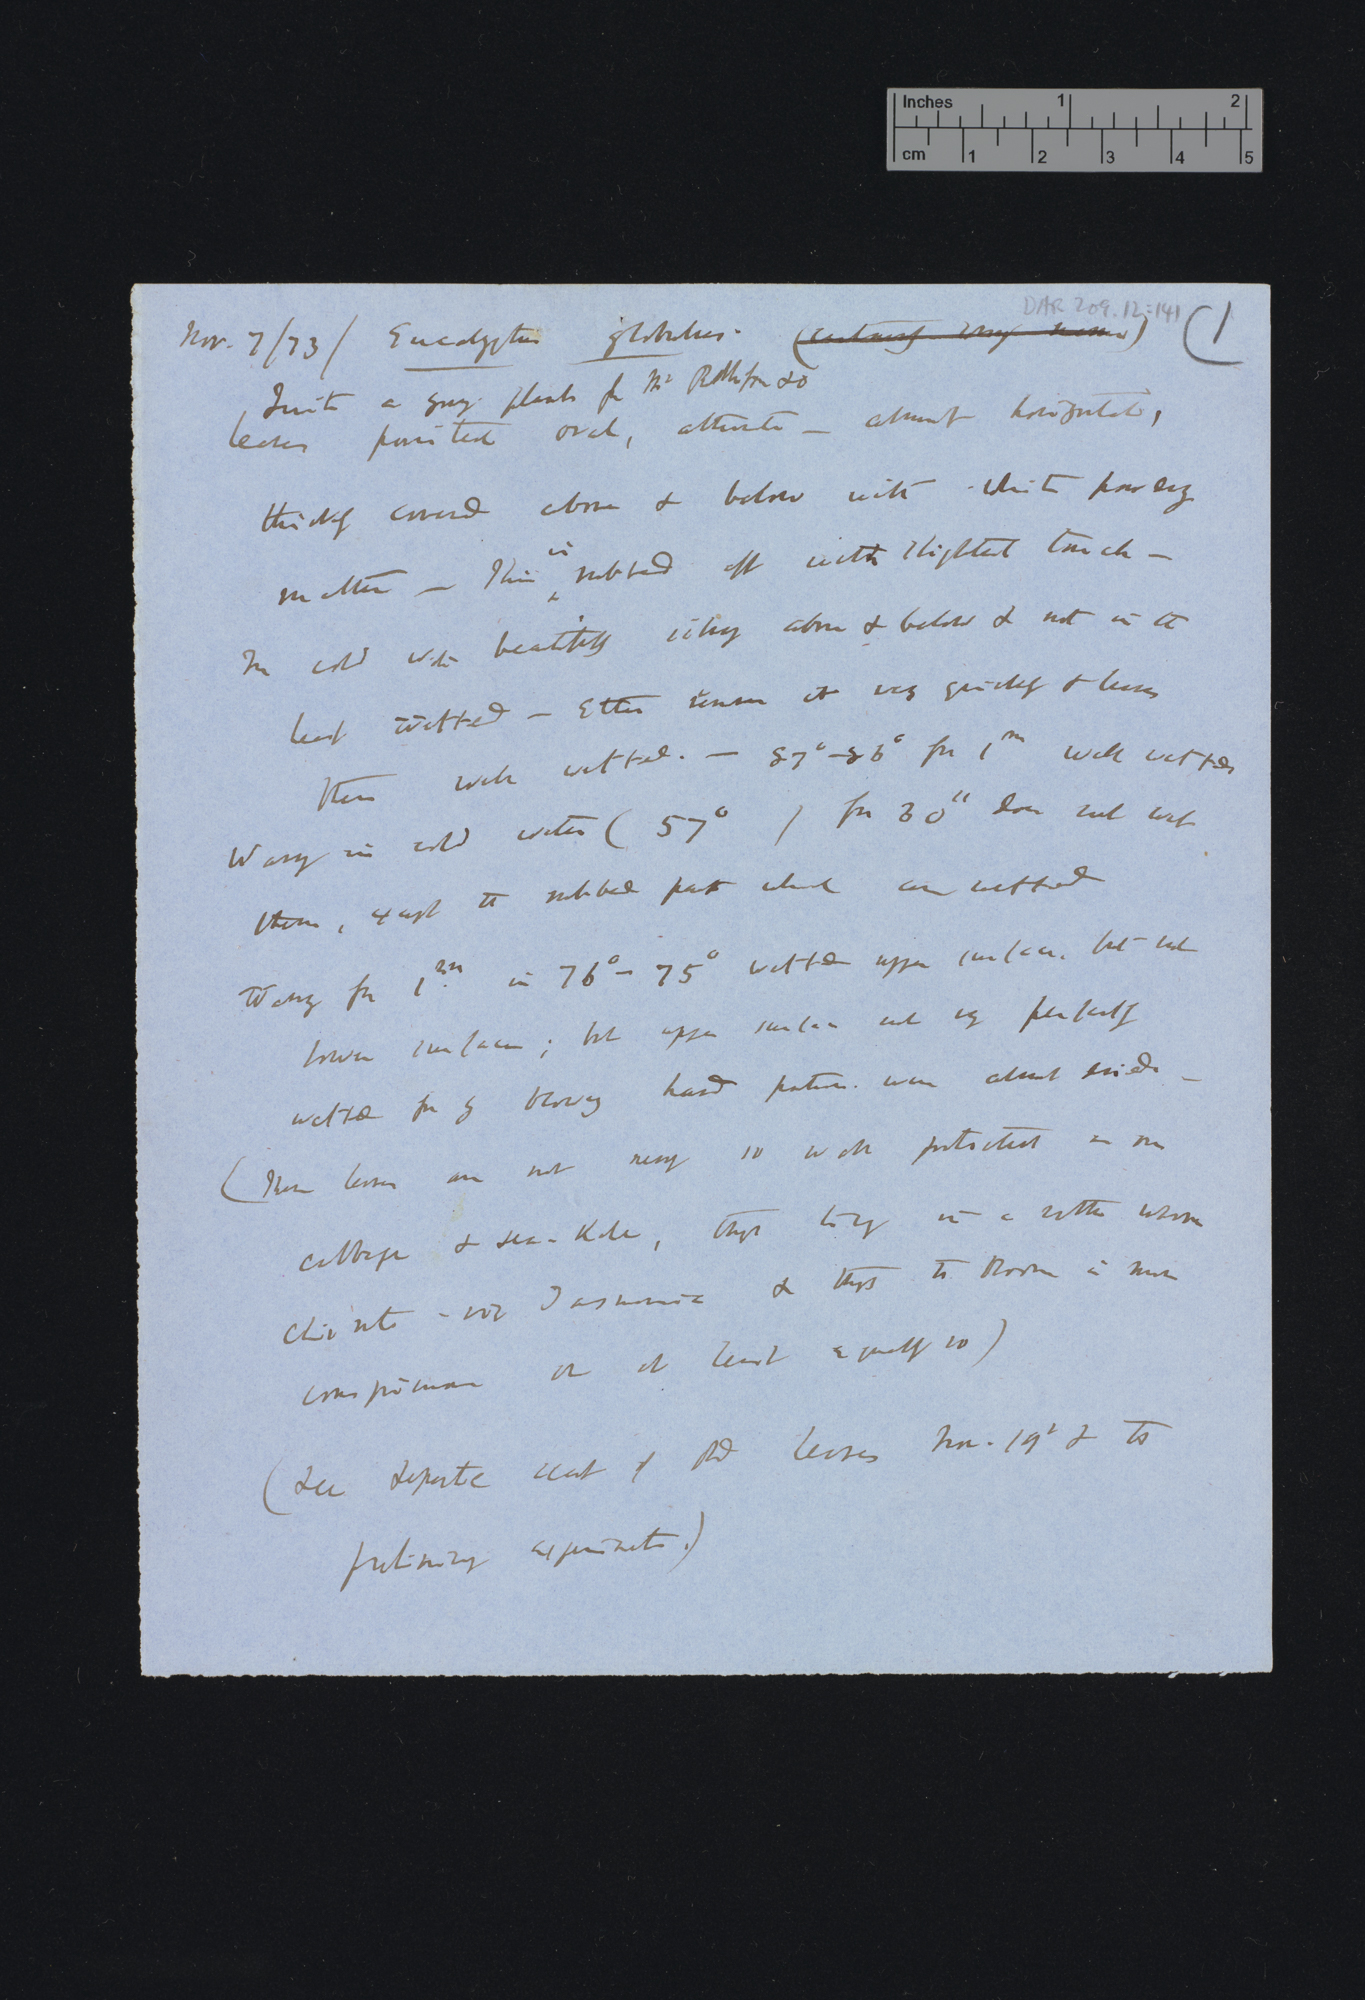 Inches 1 2
cm 1 2 3 4 5
DAR 209.12:141
(1
Nov. 7/73/ Eucalyptus globulus.
Quite a young plants fr Mr
leaves pointed oval, alternate — almost horizontal,
thickly covered above & below with white powdery
matter — This is rubbed off with slightest touch —
In cold water beautifully silvery above & below & not in the
least wetted — Ether removes it very quickly & leaves
then well wetted. — 87°–86° for 1m well wetted
Waving in cold water (57° ) for 30" does not wet
them, except the rubbed parts which are wetted
Waving for 1m in 76°–75° wetted upper surface. but not
lower surfaces; but upper surface not very perfectly
wetted for by blowing hard patches were almost dried —
(These leaves are not nearly so well protected as are
cabbage & sea-Kale, though living in a rather warm
climate – viz Tasmania & though the Bloom is more
conspicuous or at least equally so)
(See separate sheet of old leaves Nov. 19th & the
preliminary experiments.)